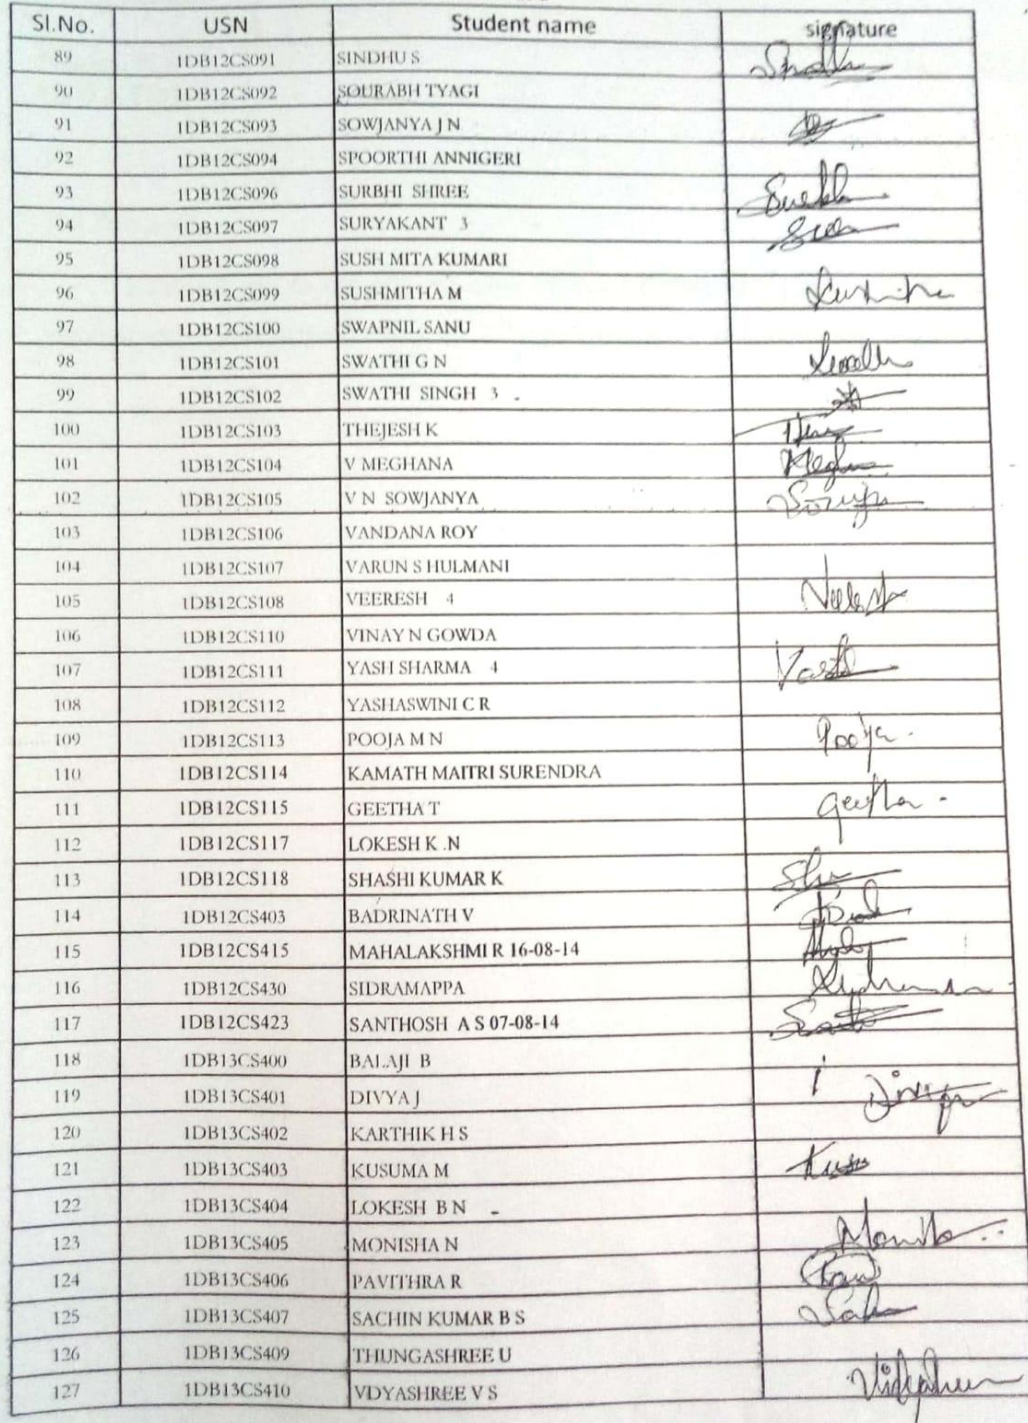 Sl.No. USN Student name signature
89 1DB12CS091 SINDHU S
90 1DB12CS092 SOURABH TYAGI
91 1DB12CS093 SOWJANYA J N
92 1DB12CS094 SPOORTHI ANNIGERI
93 1DB12CS096 SURBHI SHREE
94 1DB12CS097 SURYAKANT 3
95 1DB12CS098 SUSH MITA KUMARI
96 1DB12CS099 SUSHMITHA M
97 1DB12CS100 SWAPNIL SANU
98 1DB12CS101 SWATHI G N
99 1DB12CS102 SWATHI SINGH 3
100 1DB12CS103 THEJESH K
101 1DB12CS104 V MEGHANA
102 1DB12CS105 V N SOWJANYA
103 1DB12CS106 VANDANA ROY
104 1DB12CS107 VARUN S HULMANI
105 1DB12CS108 VEERESH 4
106 1DB12CS110 VINAY N GOWDA
107 1DB12CS111 YASH SHARMA 4
108 1DB12CS112 YASHASWINI C R
109 1DB12CS113 POOJA M N Pooja.
110 1DB12CS114 KAMATH MAITRI SURENDRA
111 1DB12CS115 GEETHA T Geetha
112 1DB12CS117 LOKESH K .N
113 1DB12CS118 SHASHI KUMAR K
114 1DB12CS403 BADRINATH V
115 1DB12CS415 MAHALAKSHMI R 16-08-14
116 1DB12CS430 SIDRAMAPPA
117 1DB12CS423 SANTHOSH A S 07-08-14
118 1DB13CS400 BALAJI B
119 1DB13CS401 DIVYA J
120 1DB13CS402 KARTHIK H S
121 1DB13CS403 KUSUMA M
122 1DB13CS404 LOKESH B N -
123 1DB13CS405 MONISHA N
124 1DB13CS406 PAVITHRA R
125 1DB13CS407 SACHIN KUMAR B S
126 1DB13CS409 THUNGASHREE U
127 1DB13CS410 VDYASHREE V S